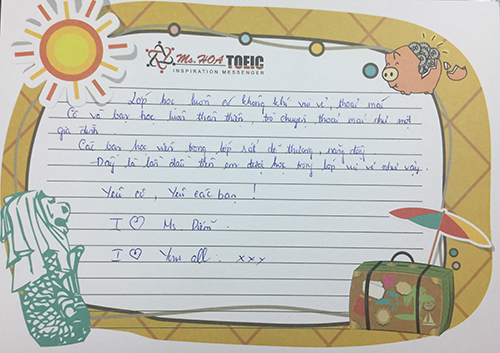 Ms. HOA TOEIC
INSPIRATION MESSENGER
Lớp học luôn có không khí vui vẻ, thoải mái
Cô và bạn học luôn thân thiện, trò chuyện thoải mái như một
gia đình
Các bạn học viên trong lớp rất dễ thương, năng động
Đây là lần đầu tiên em được học trong lớp vui vẻ như vậy.
Yêu cô, Yêu các bạn !
I ♡ Ms Diễm.
I ♡ You all. xxy